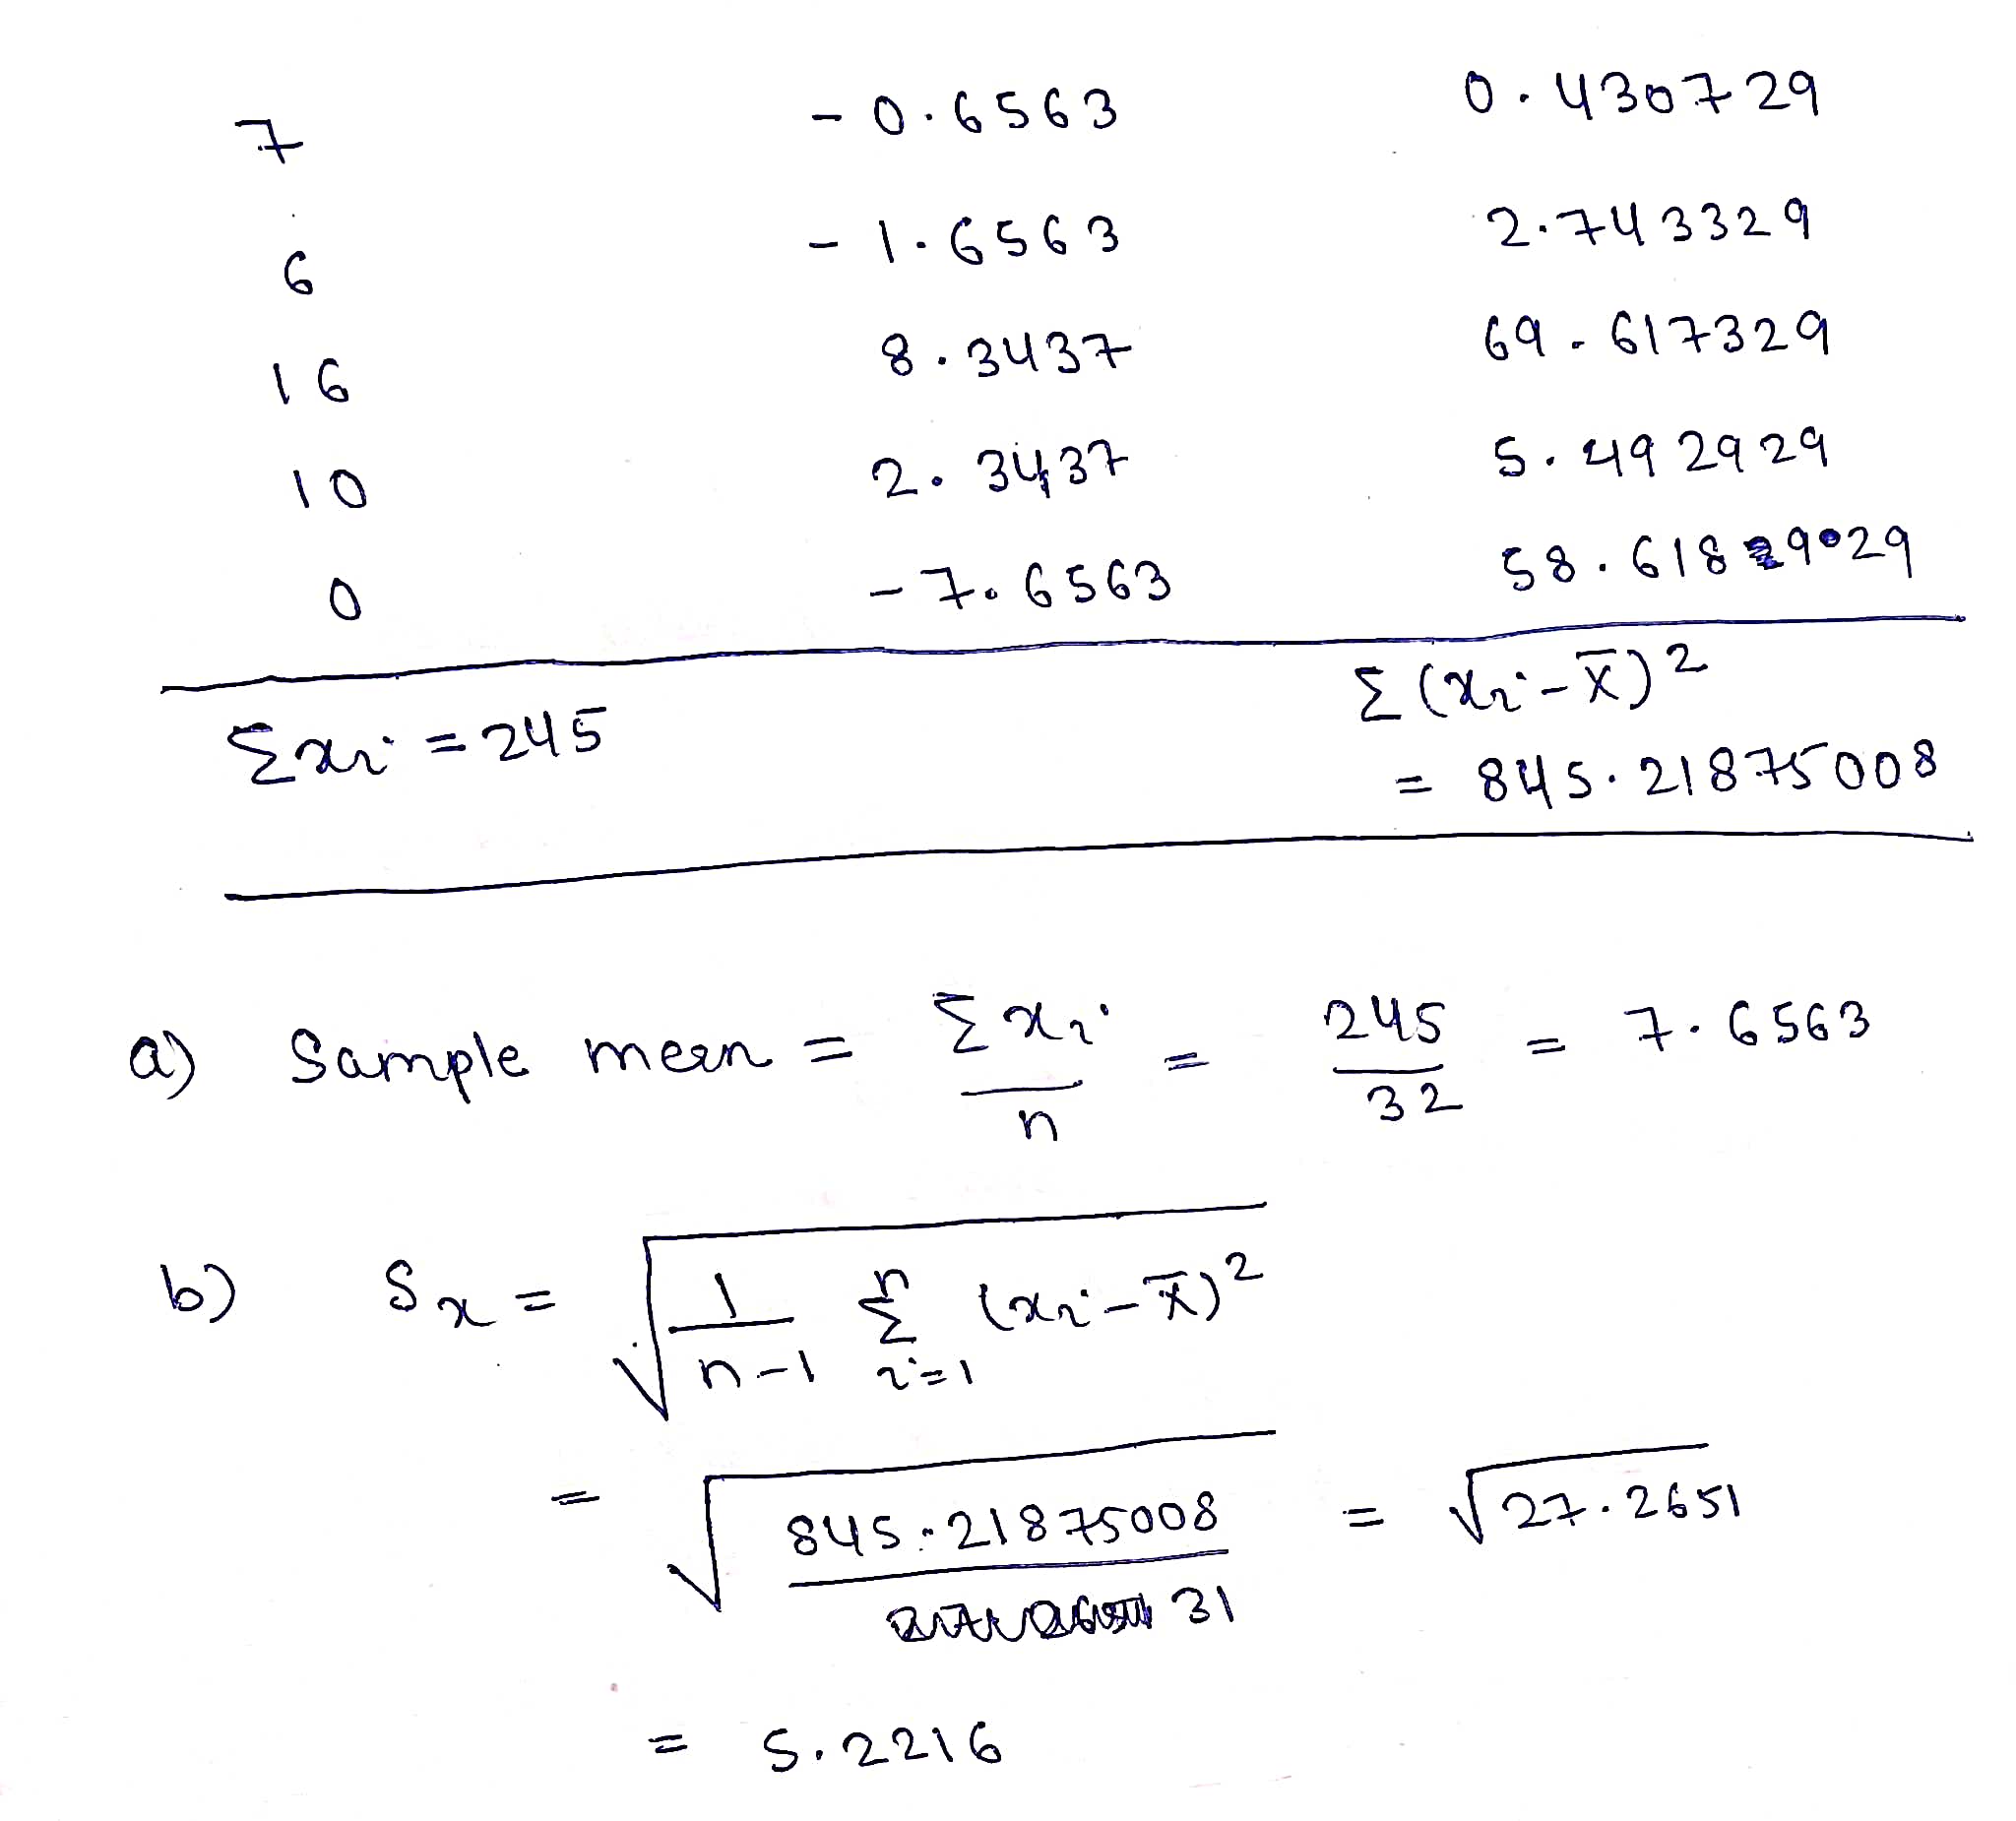 7 -0.6563 0.430729
6 -1.6563 2.743329
16 8.3437 69.617329
10 2.3437 5.492929
0 -7.6563 58.618929
Σxi = 245 Σ(xi-x̄)²
= 845.21875008
a) Sample mean = Σxi / n = 245 / 32 = 7.6563
b) Sx = √(1/(n-1) Σ_{i=1}^{n} (xi-x̄)²)
= √(845.21875008 / 31) = √27.2651
= 5.2216